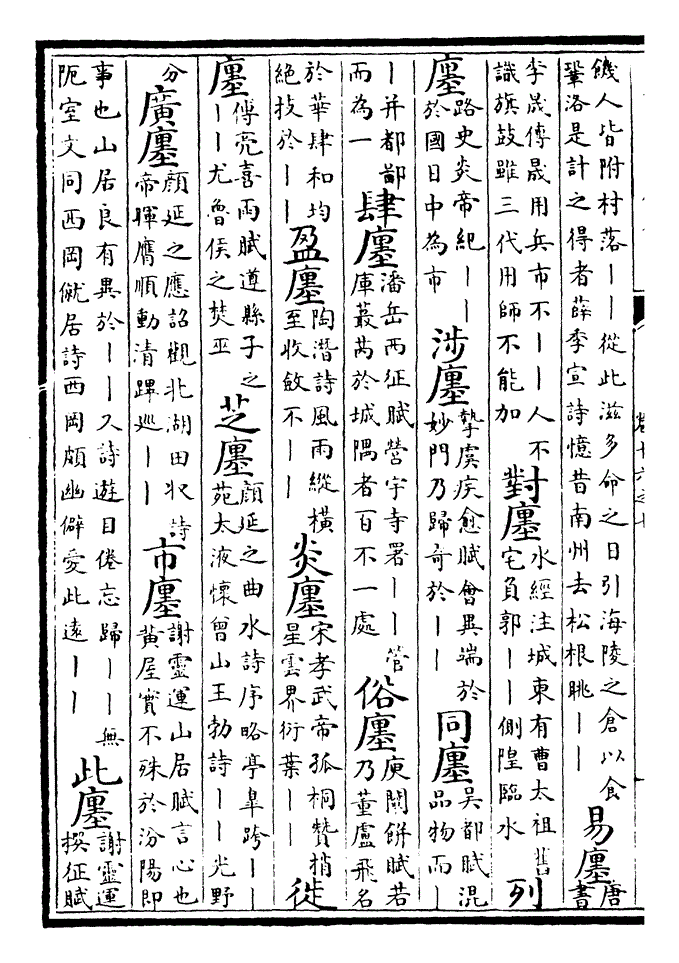 饑人皆附村落丨丨從此滋多命之日引海陵之倉以食鞏洛是計之得者薛季宣詩憶昔南州去松根眺丨丨易廛唐書
李晟傳晟用兵市不丨丨人不識旗鼓雖三代用師不能加對廛水經注城東有曹太祖舊宅負郭丨丨側隍臨水列
廛路史炎帝紀丨丨於國日中為市涉廛摯虞疾愈賦會異端於妙門乃歸奇於丨丨同廛吳都賦混品物而丨
丨并都鄙而為一肆廛潘岳西征賦營宇寺署丨丨管庫蕞芮於城隅者百不一處俗廛庾闡餅賦若乃董盧飛名
於華肆和均絕技於丨丨盈廛陶潛詩風雨縱橫至收斂不丨丨炎廛宋孝武帝孤桐贊梢星雲界衍葉丨丨徙
廛傅亮喜雨賦遵縣子之丨丨尤魯侯之焚巫芝廛顏延之曲水詩序略亭皐跨丨丨苑太液懷曾山王勃詩丨丨光野
分廣廛顏延之應詔觀北湖田收詩帝暉膺順動清蹕巡丨丨市廛謝靈運山居賦言心也黃屋實不殊於汾陽即
事也山居良有異於丨丨又詩遊目倦忘歸丨丨無阨室文同西岡僦居詩西岡頗幽僻愛此遠丨丨此廛謝靈運撰征賦